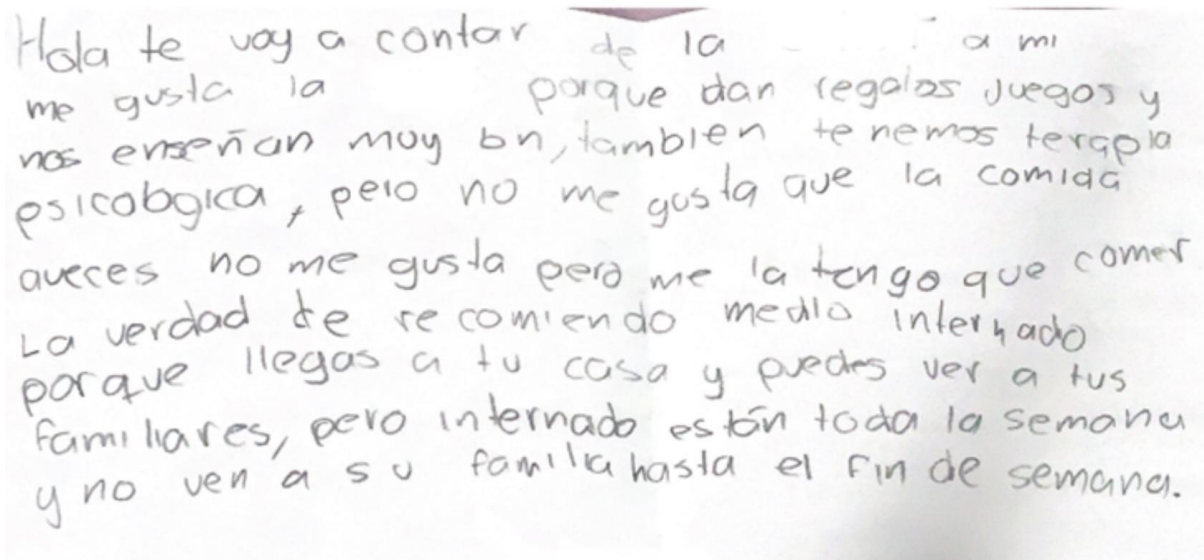 Hola te voy a contar de la a mi
me gusta la porque dan regalos juegos y
nos enseñan muy bn, tambien tenemos terapia
psicologica, pero no me gusta que la comida
aveces no me gusta pero me la tengo que comer
La verdad te recomiendo medio internado
porque llegas a tu casa y puedes ver a tus
familiares, pero internado están toda la semana
y no ven a su familia hasta el fin de semana.